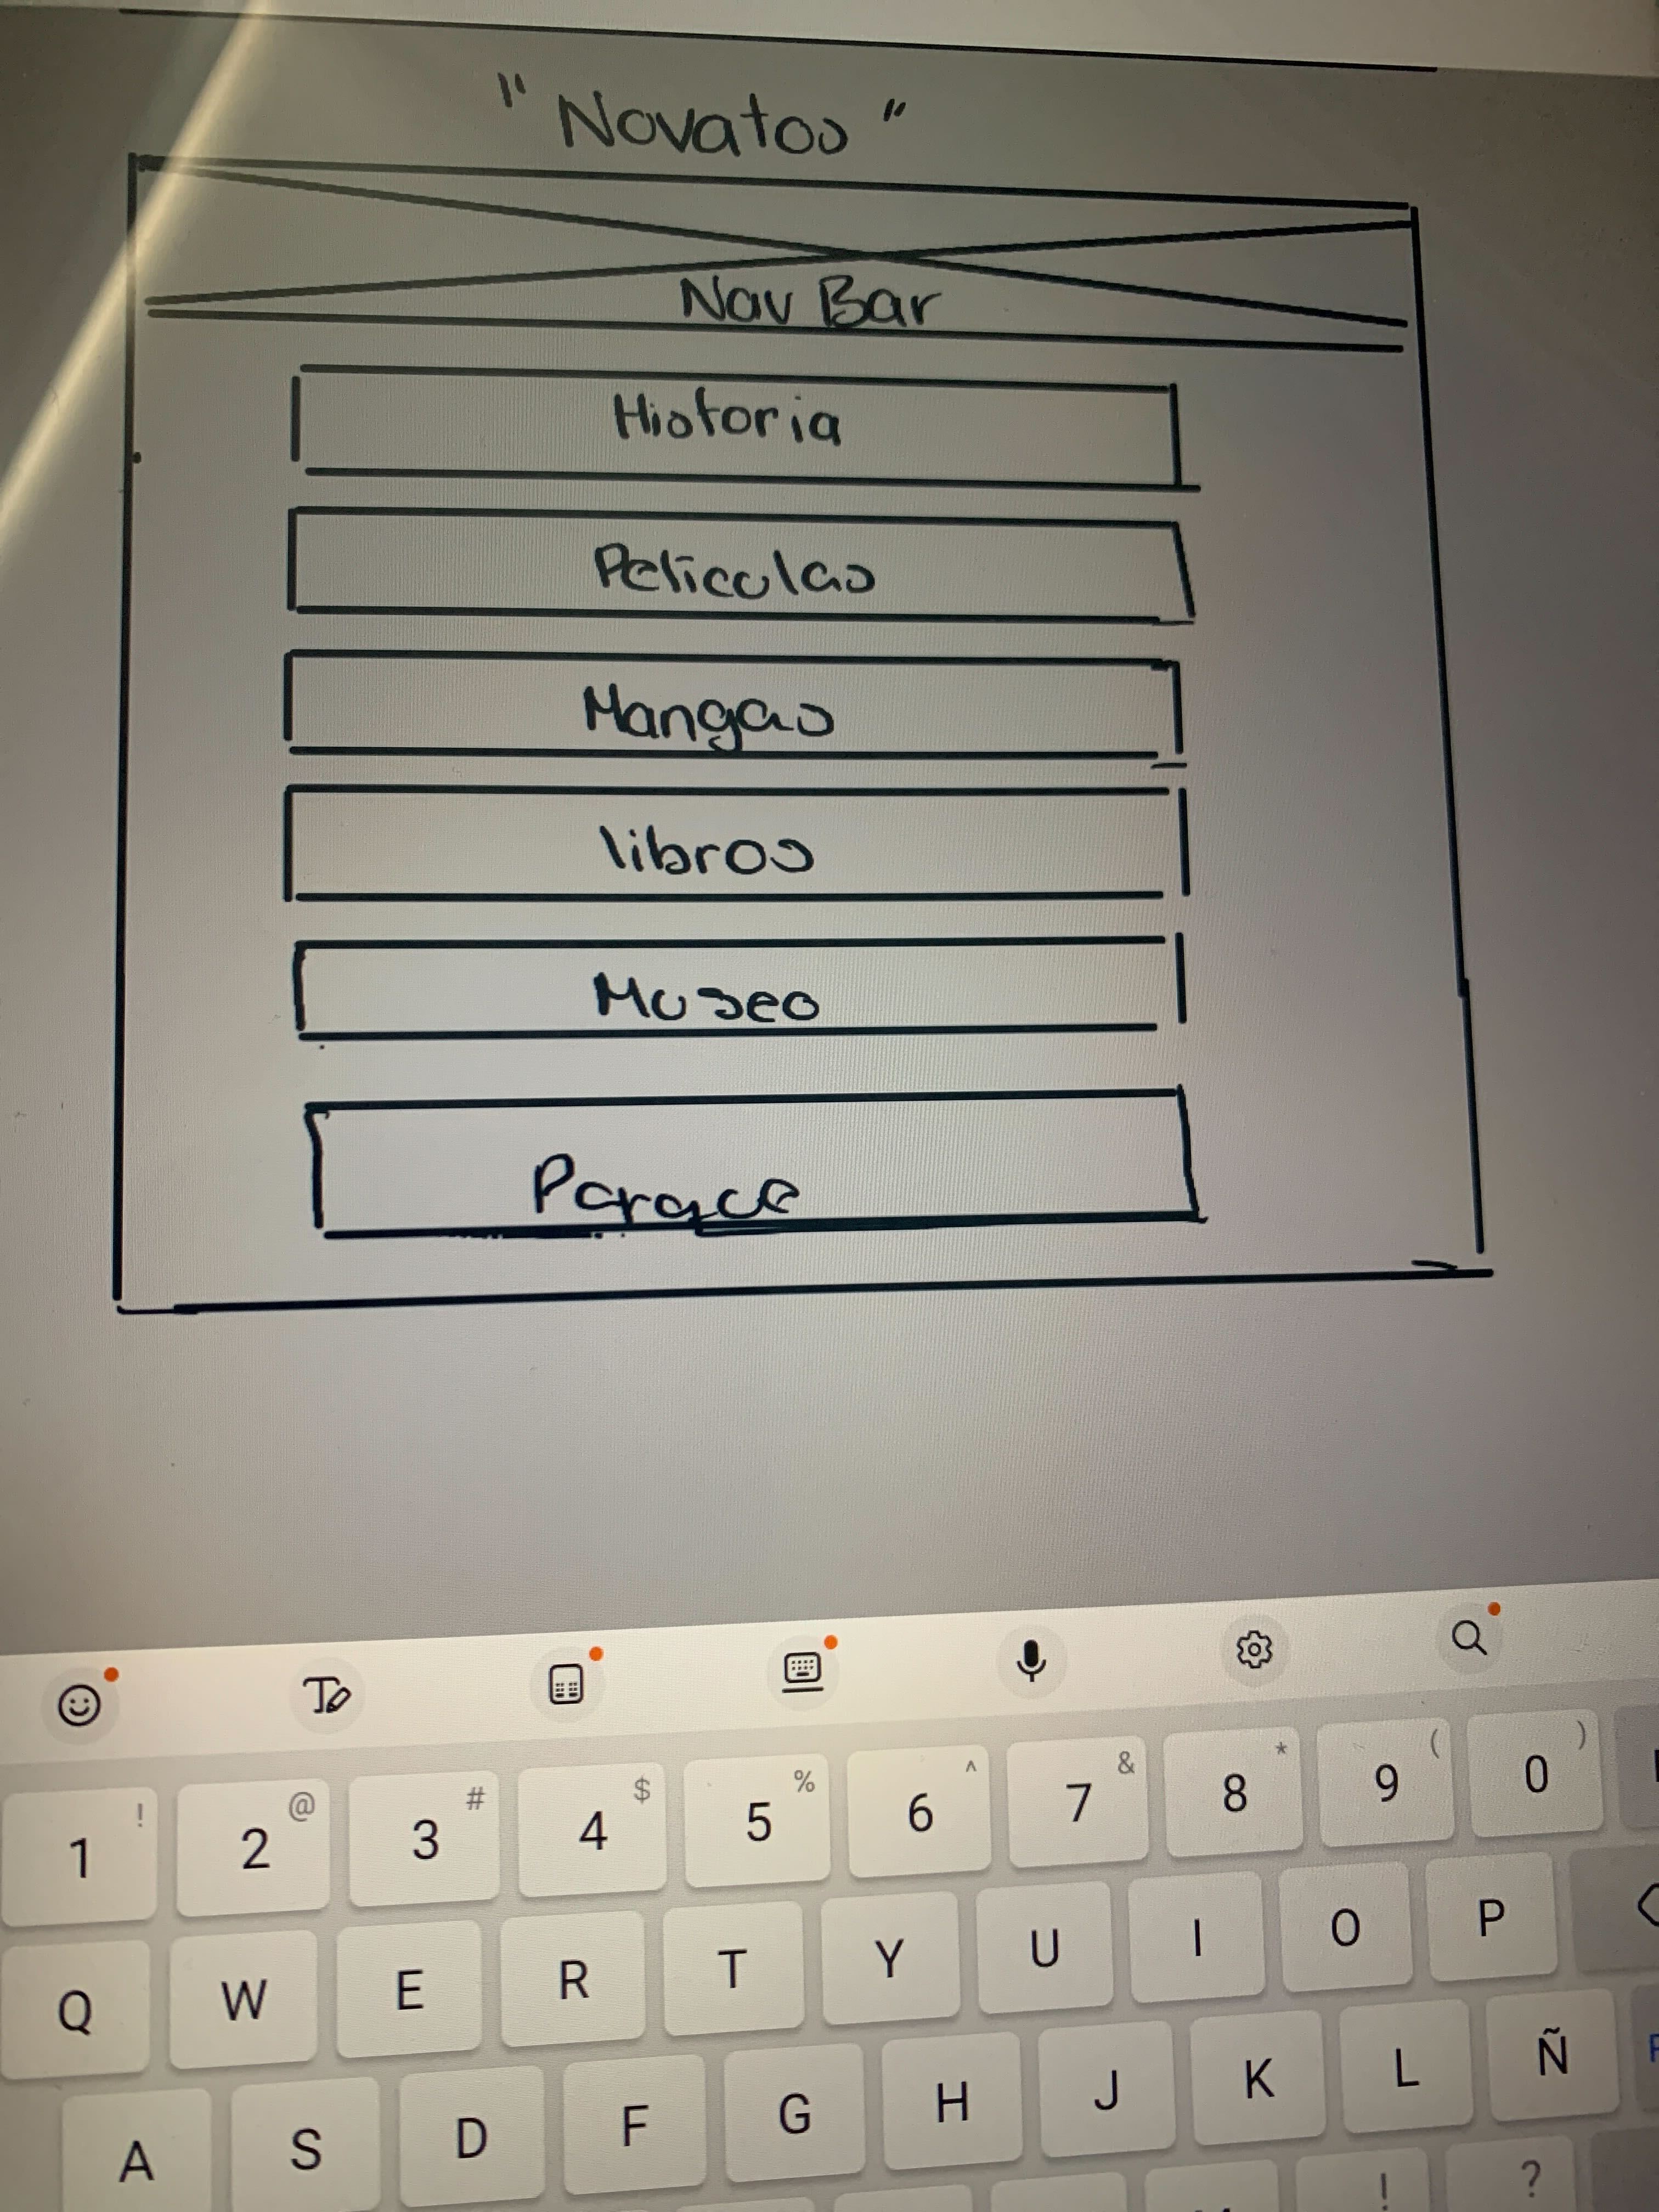 "Novatos"
Nav Bar
Historia
Peliculas
Mangas
libros
Museo
Parque
1 ! 2 @ 3 # 4 $ 5 % 6 ^ 7 & 8 * 9 ( 0 )
Q W E R T Y U I O P
A S D F G H J K L Ñ
! ?